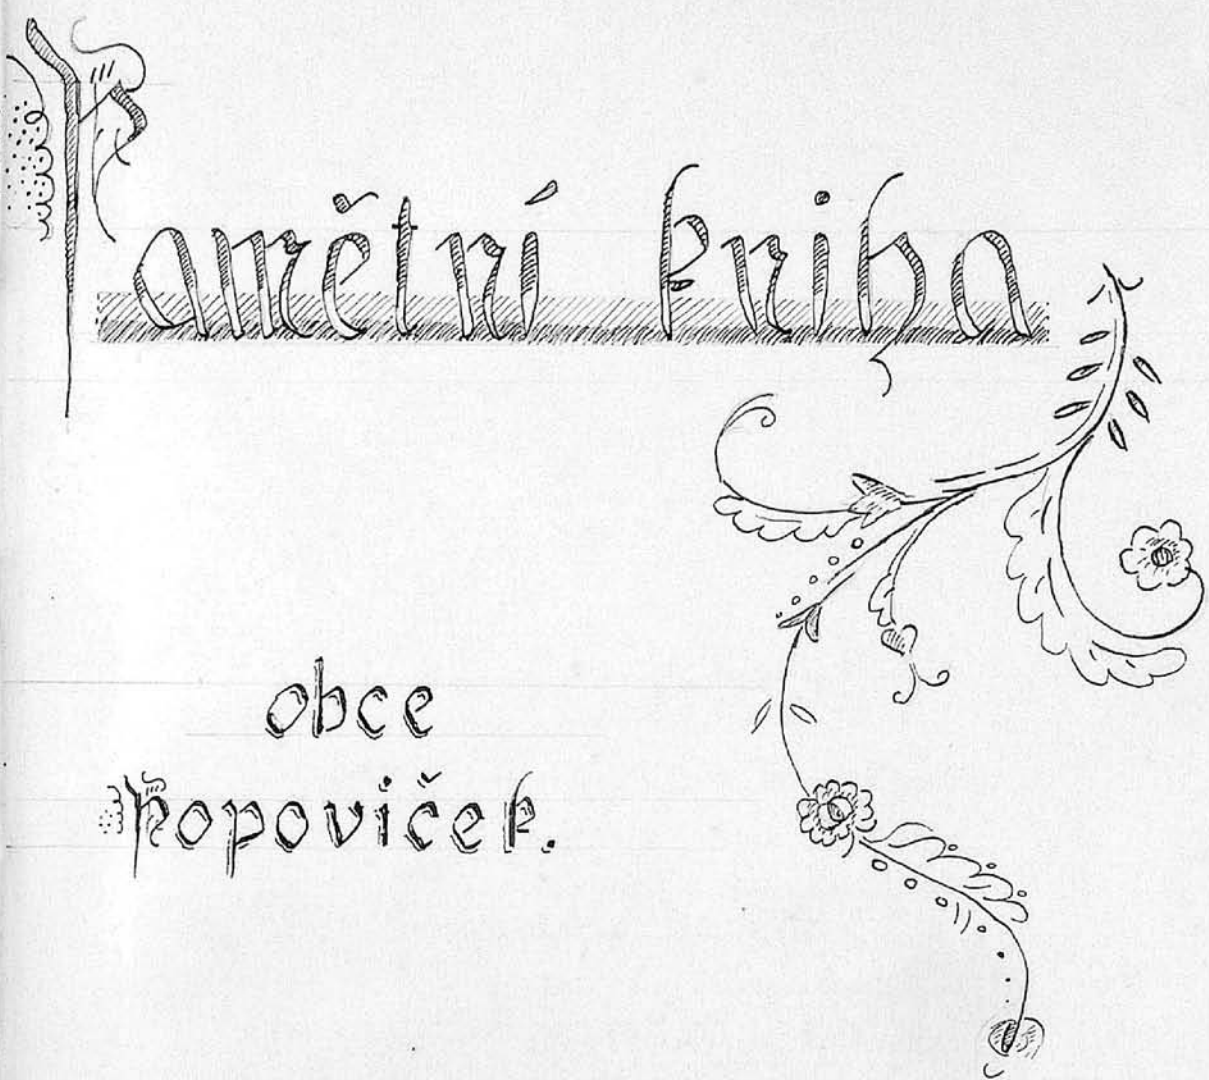 Pamětní kniha
obce
Popoviček.